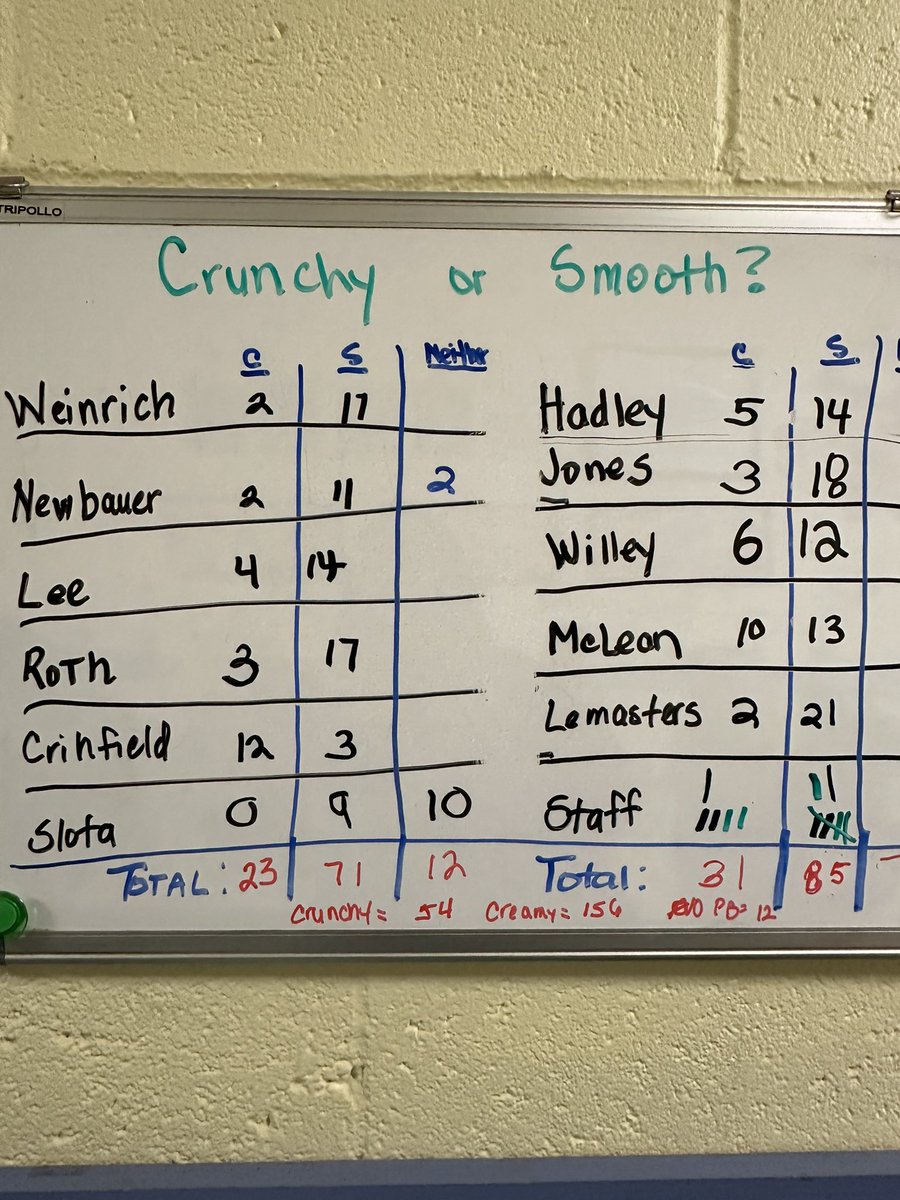 TRIPOLLO
Crunchy or Smooth?
C S Neither
Weinrich 2 17
Newbauer 2 11 2
Lee 4 14
Roth 3 17
Crihfield 12 3
Slota 0 9 10
TOTAL: 23 71 12
C S
Hadley 5 14
Jones 3 18
Willey 6 12
McLean 10 13
Lemasters 2 21
Staff
Total: 31 85
Crunchy = 54 Creamy = 156 NO PB= 12